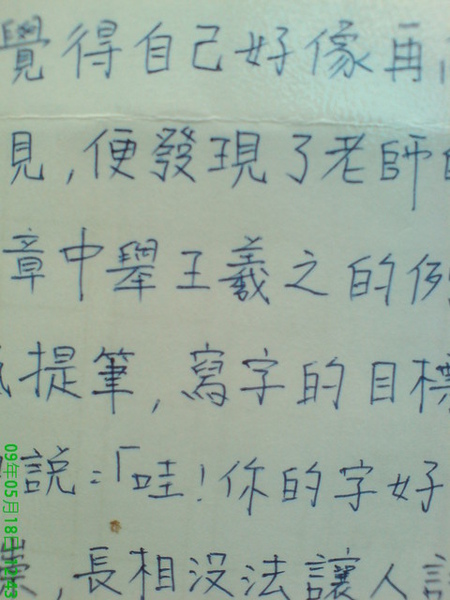 覺得自己好像再
見,便發現了老師的
章中舉王羲之的例
提筆,寫字的目標
說:「哇!你的字好
,長相没法讓人
09年05月18日